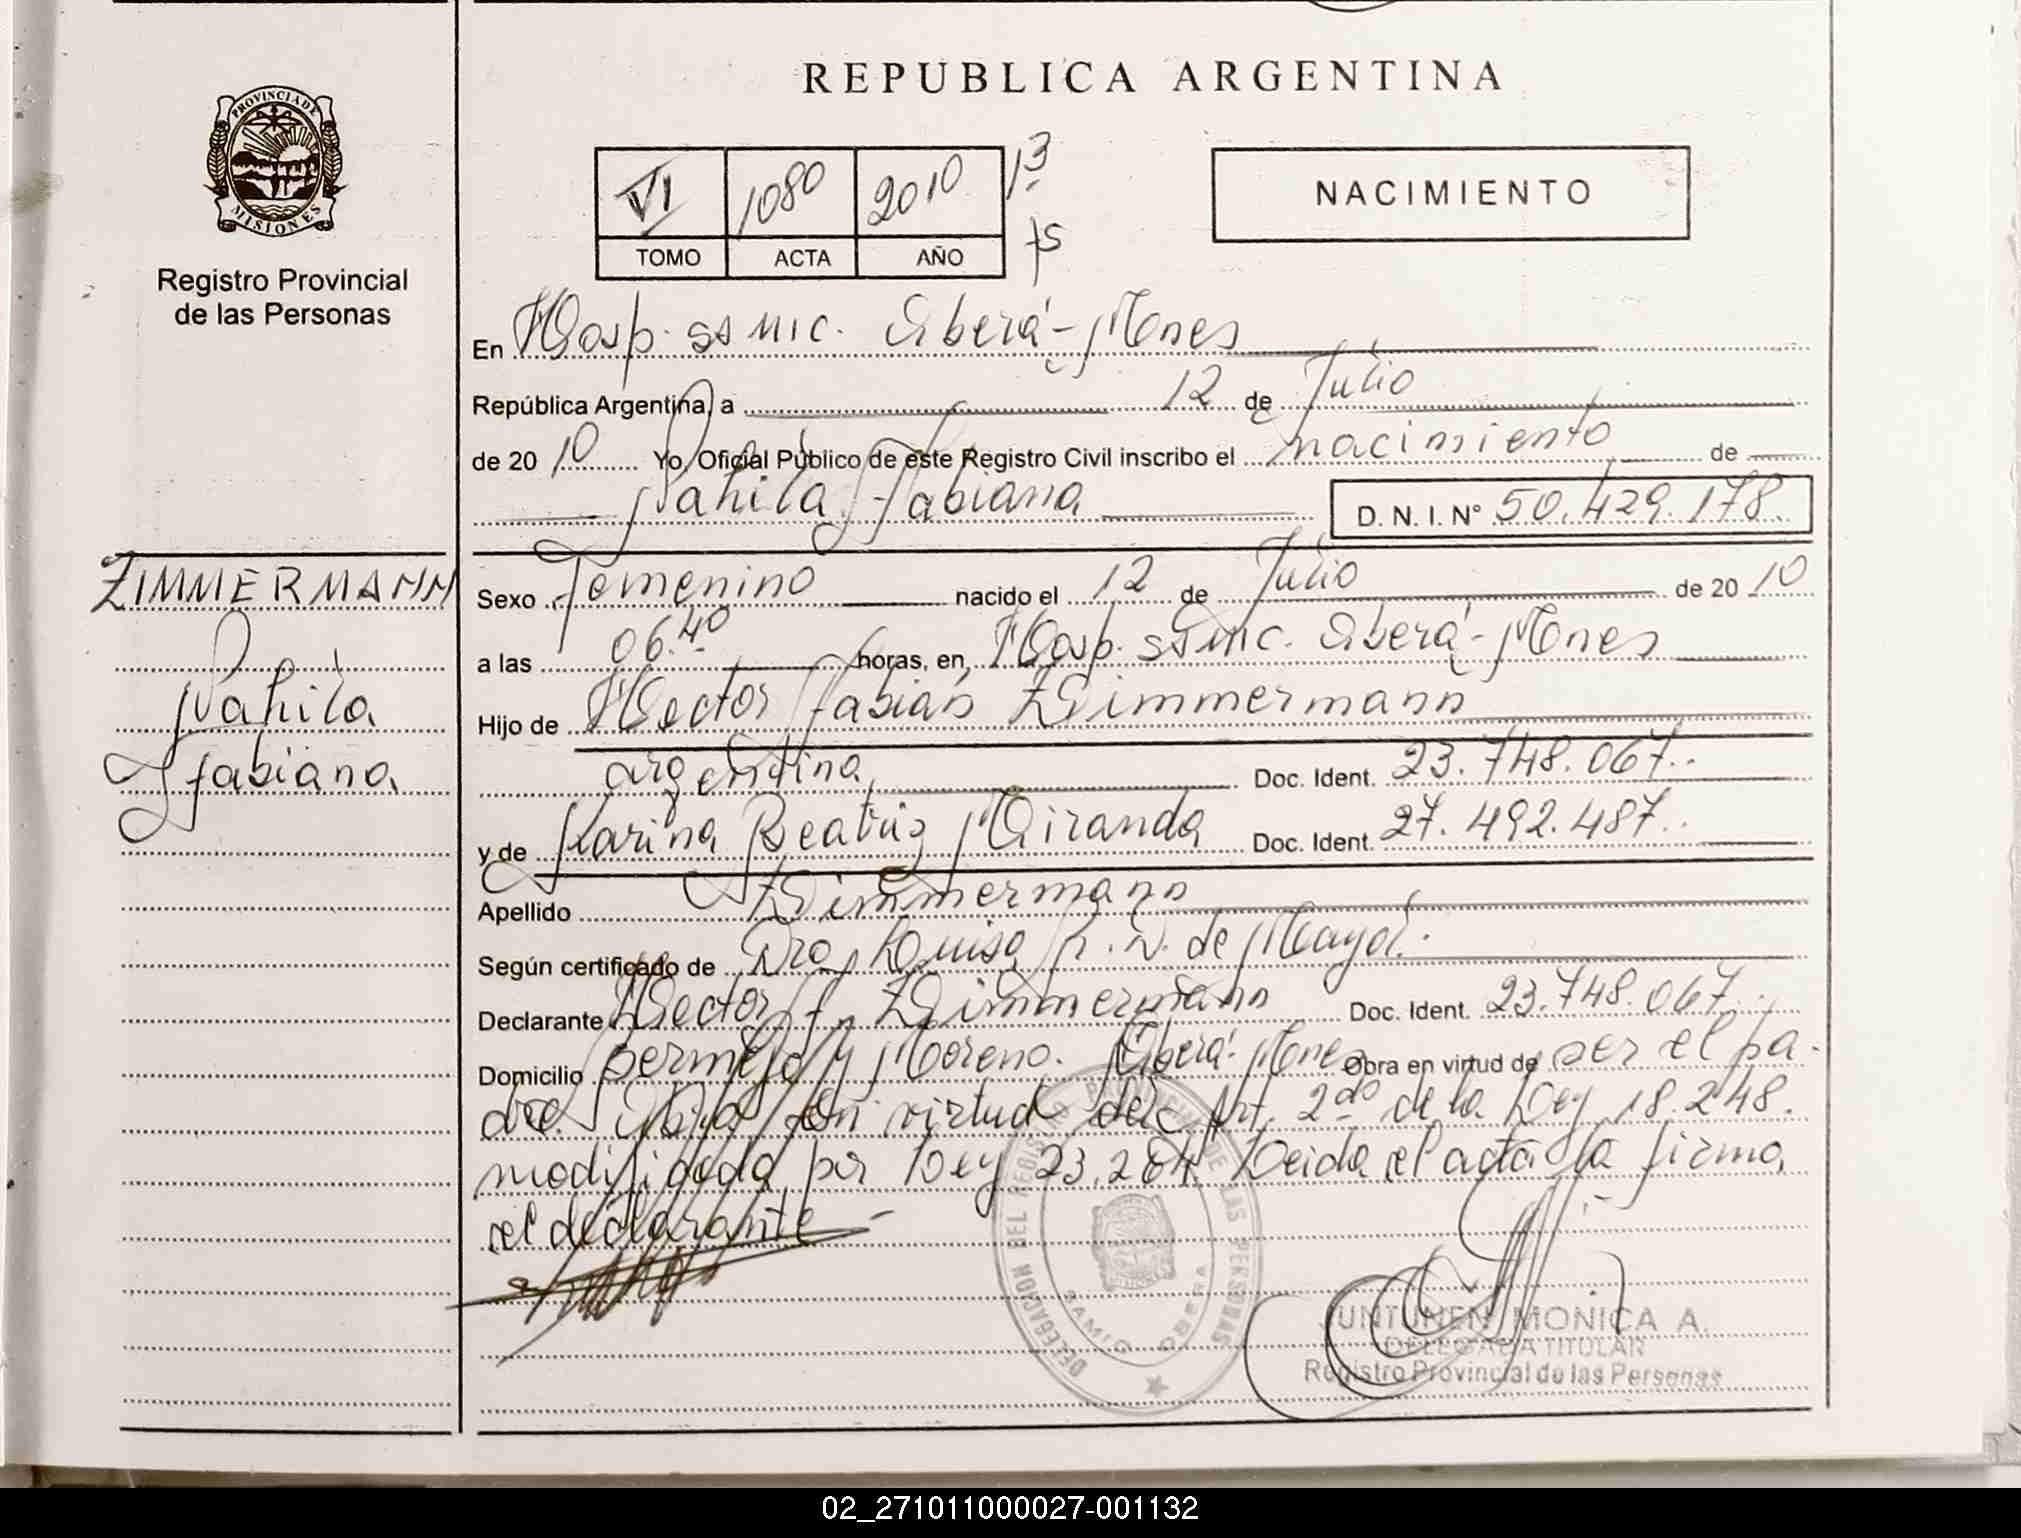 REPUBLICA ARGENTINA
PROVINCIA DE
MISIONES
Registro Provincial
de las Personas
VI 1080 2010 13
TOMO ACTA AÑO
NACIMIENTO
En Hosp. ssmic. Oberá - Mones
República Argentina, a 12 de Julio
de 20 10 Yo, Oficial Público de este Registro Civil inscribo el nacimiento de
Nahila Fabiana D. N. I. N° 50.429.178.
ZIMMERMANN
Nahila
Fabiana
Sexo Femenino nacido el 12 de Julio de 20 10
a las 06.40 horas, en Hosp. ssmic. Oberá - Mones
Hijo de Hector Fabian Zimmermann
argentina Doc. Ident. 23.748.067..
y de Karina Beatriz Miranda Doc. Ident. 27.492.487..
Apellido Zimmermann
Según certificado de Dra Luisa R. D. de Mayol.
Declarante Hector F. Zimmermann Doc. Ident. 23.748.067..
Domicilio Bermejo y Moreno. Oberá - Mones Obra en virtud de ser el pa-
dre. Obra en virtud del Art. 2do de la Ley 18.248.
modificada por Ley 23.264. Leida el acta la firma
el declarante
DELEGACION DEL REGISTRO PROVINCIAL DE LAS PERSONAS
SAMIC OBERA
JUNTUNEN MONICA A.
DELEGADA TITULAR
Registro Provincial de las Personas
02_271011000027-001132